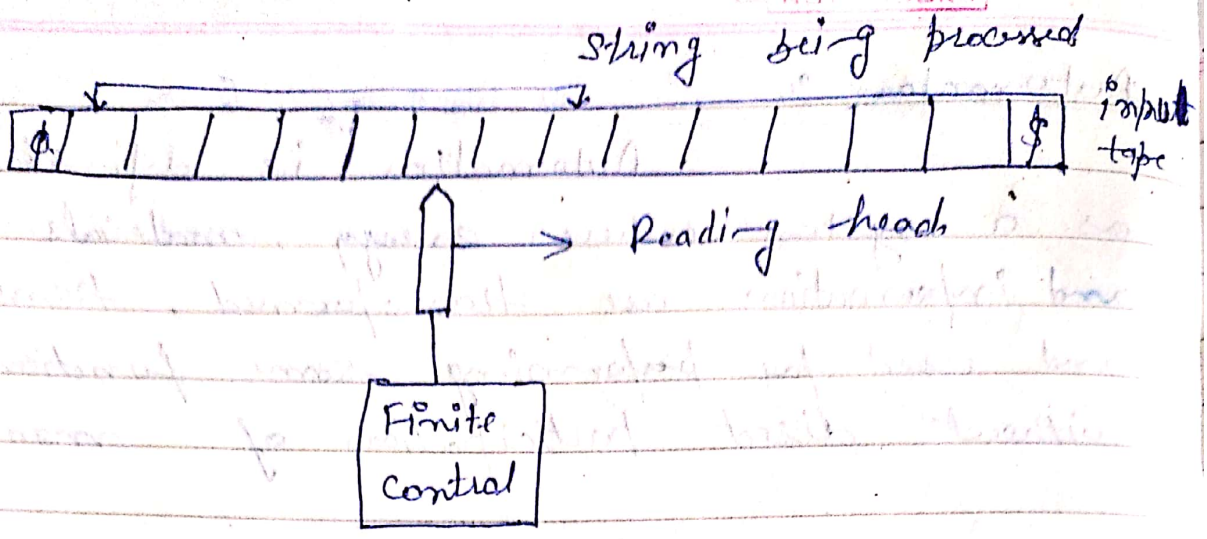 String being processed
¢ $ input
tape
Reading head
Finite
Control